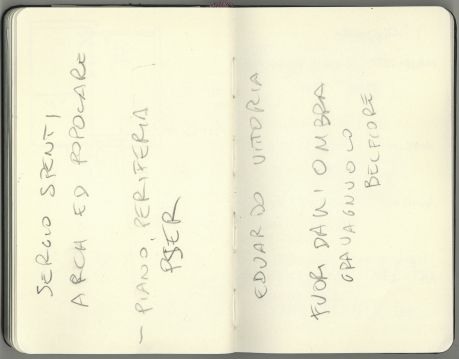 SERGIO STENTI
ARCH ED POPOLARE
– PIANO, PERIFERIA
PSER
EDUARDO VITTORIA
FUORI DALL'OMBRA
GRAVAGNUOLO
BELFIORE